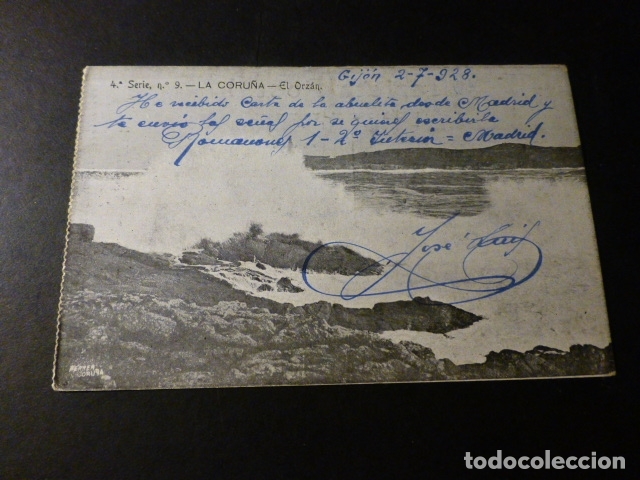 4.ª Serie, n.º 9. — LA CORUÑA — El Orzán.
Gijón 2-7-928.
He recibido Carta de la abuelita desde Madrid y
te envío las señas por si quieres escribirla
Romanones 1-2º Interior = Madrid.
José Luis
FERRER
CORUÑA
todocoleccion.net